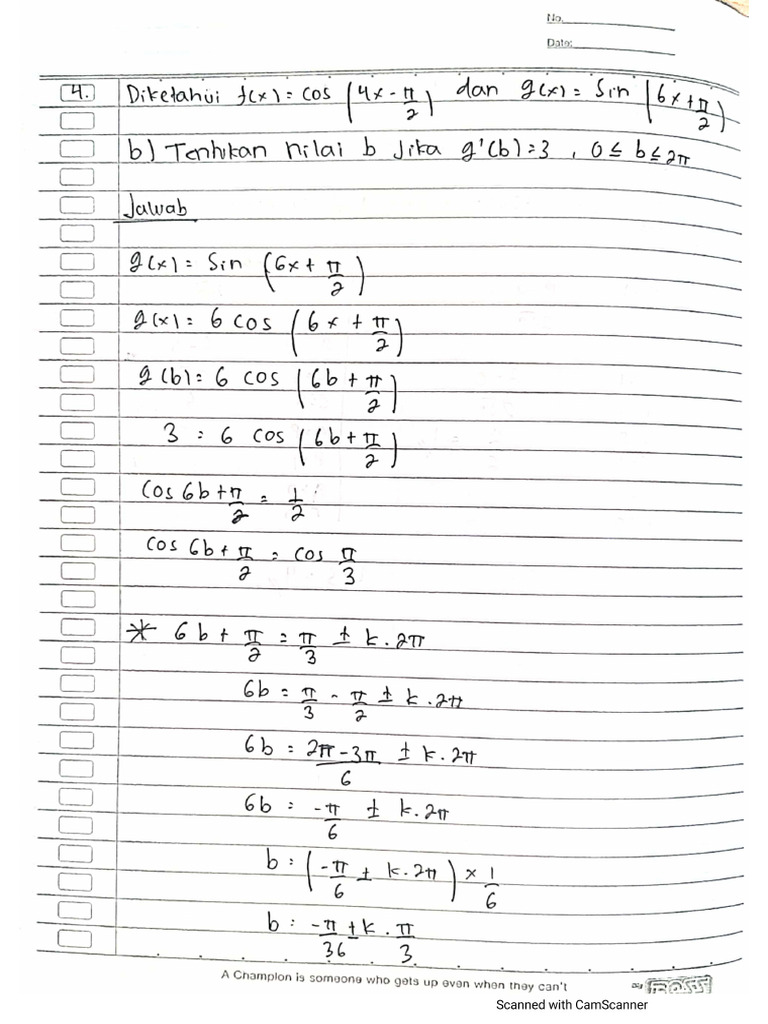 No.
Date:
4. Diketahui f(x) = cos (4x - π/2) dan g(x) = sin (6x + π/2)
b) Tentukan nilai b Jika g'(b) = 3 , 0 ≤ b ≤ 2π
Jawab
g(x) = Sin (6x + π/2)
g(x) = 6 cos (6x + π/2)
g(b) = 6 cos (6b + π/2)
3 = 6 cos (6b + π/2)
Cos 6b + π/2 = 1/2
cos 6b + π/2 = cos π/3
* 6b + π/2 = π/3 ± k . 2π
6b = π/3 - π/2 ± k . 2π
6b = (2π - 3π)/6 ± k . 2π
6b = -π/6 ± k . 2π
b = (-π/6 ± k . 2π) × 1/6
b = -π/36 ± k . π/3
A Champion is someone who gets up even when they can't
Scanned with CamScanner